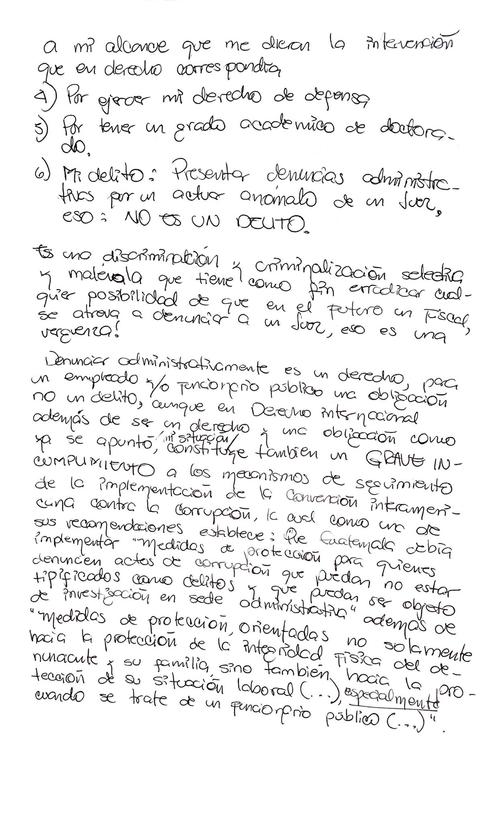 a mi alcance que me dieran la intervención
que en derecho correspondía
4) Por ejercer mi derecho de defensa
5) Por tener un grado academico de doctora-
do.
6) Mi delito: Presentar denuncias administra-
tivas por un actuar anómalo de un Juez,
eso: NO ES UN DELITO.
Es una discriminación y criminalización selectiva
y malévola que tiene como fin erradicar cual-
quier posibilidad de que en el futuro un Fiscal,
se atreva a denunciar a un Juez, eso es una
verguenza!
Denunciar administrativamente es un derecho, para
un empleado y/o funcionario público una obligación
no un delito, aunque en Derecho internacional
además de ser un derecho y una obligación como
ya se apuntó, mi situación constituye también un GRAVE IN-
CUMPLIMIENTO a los mecanismos de seguimiento
de la implementación de la Convención interameri-
cana contra la Corrupción, la cual como una de
sus recomendaciones establece: Que Guatemala debía
implementar "medidas de protección para quienes
denuncien actos de corrupción que puedan no estar
tipificados como delitos y que puedan ser objeto
de investigación en sede administrativa" además de
"medidas de protección, orientadas no solamente
hacia la protección de la integridad física del de-
nunciante y su familia, sino también, hacia la pro-
tección de su situación laboral (...), especialmente
cuando se trate de un funcionario público (...)".